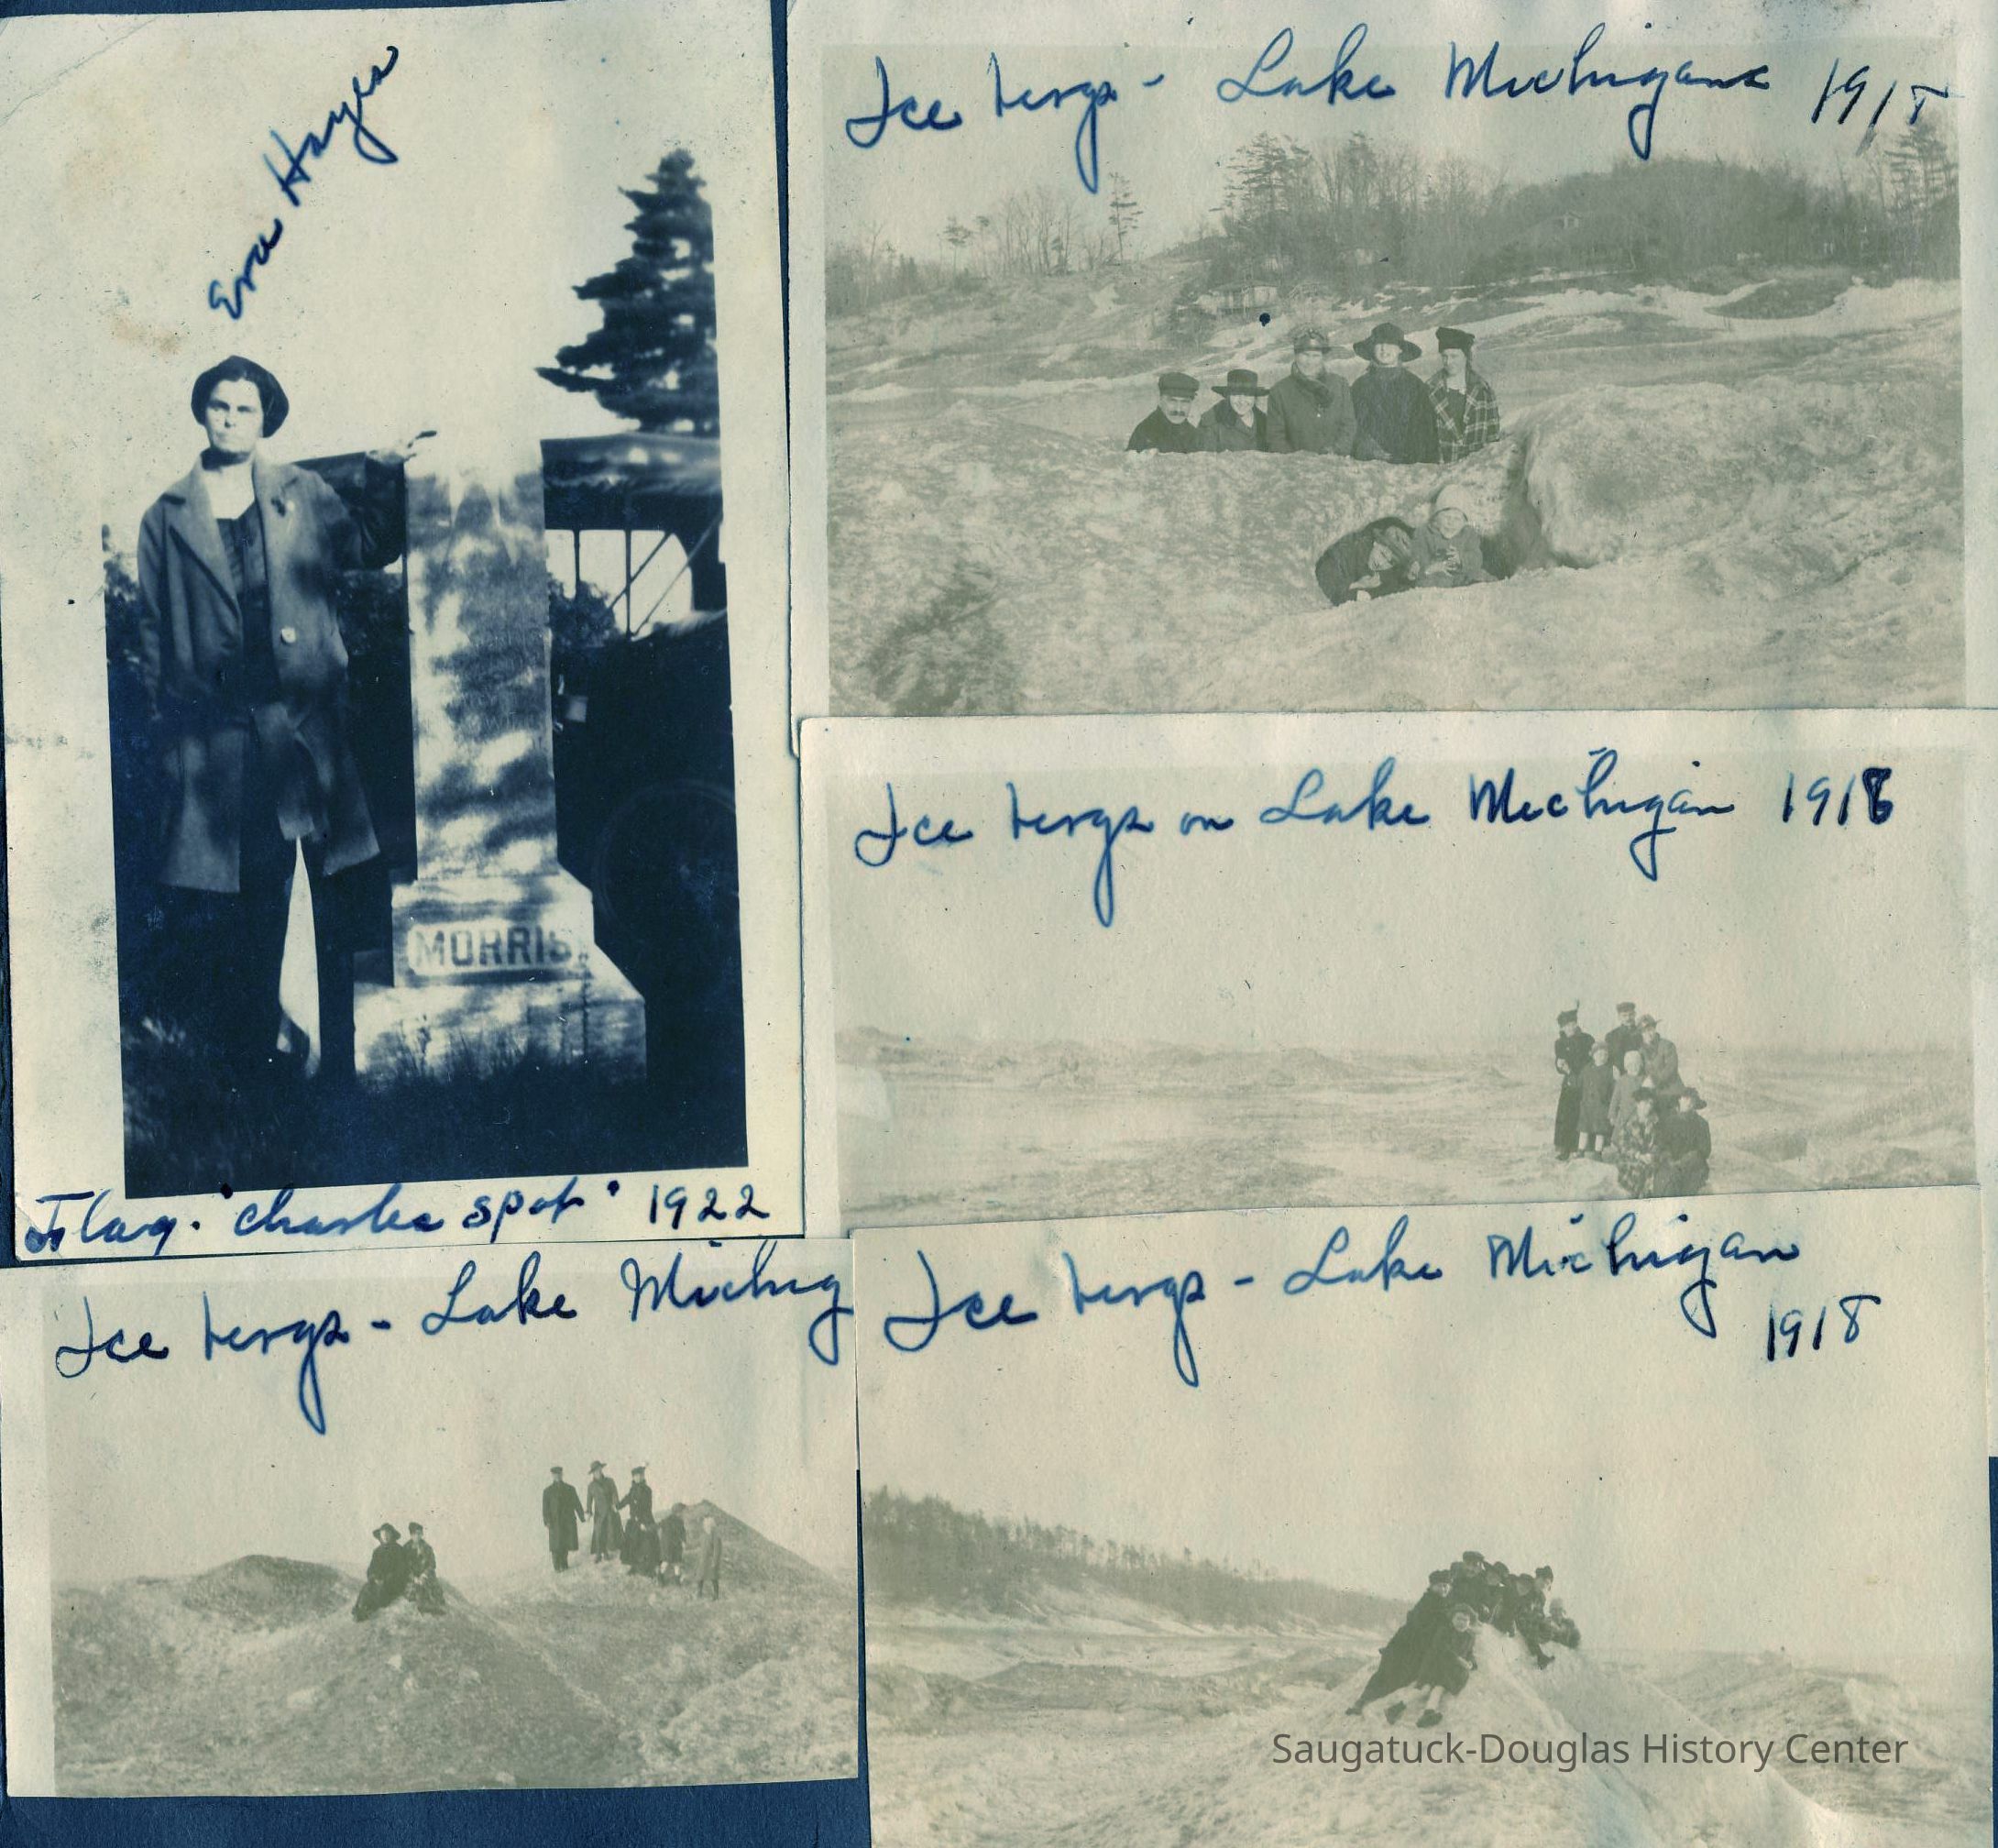 Eva Hayes
MORRIS.
Flag. "Charles spot" 1922
Ice bergs - Lake Michigan 1918
Ice bergs on Lake Michigan 1918
Ice bergs - Lake Michig
Ice bergs - Lake Michigan
1918
Saugatuck-Douglas History Center